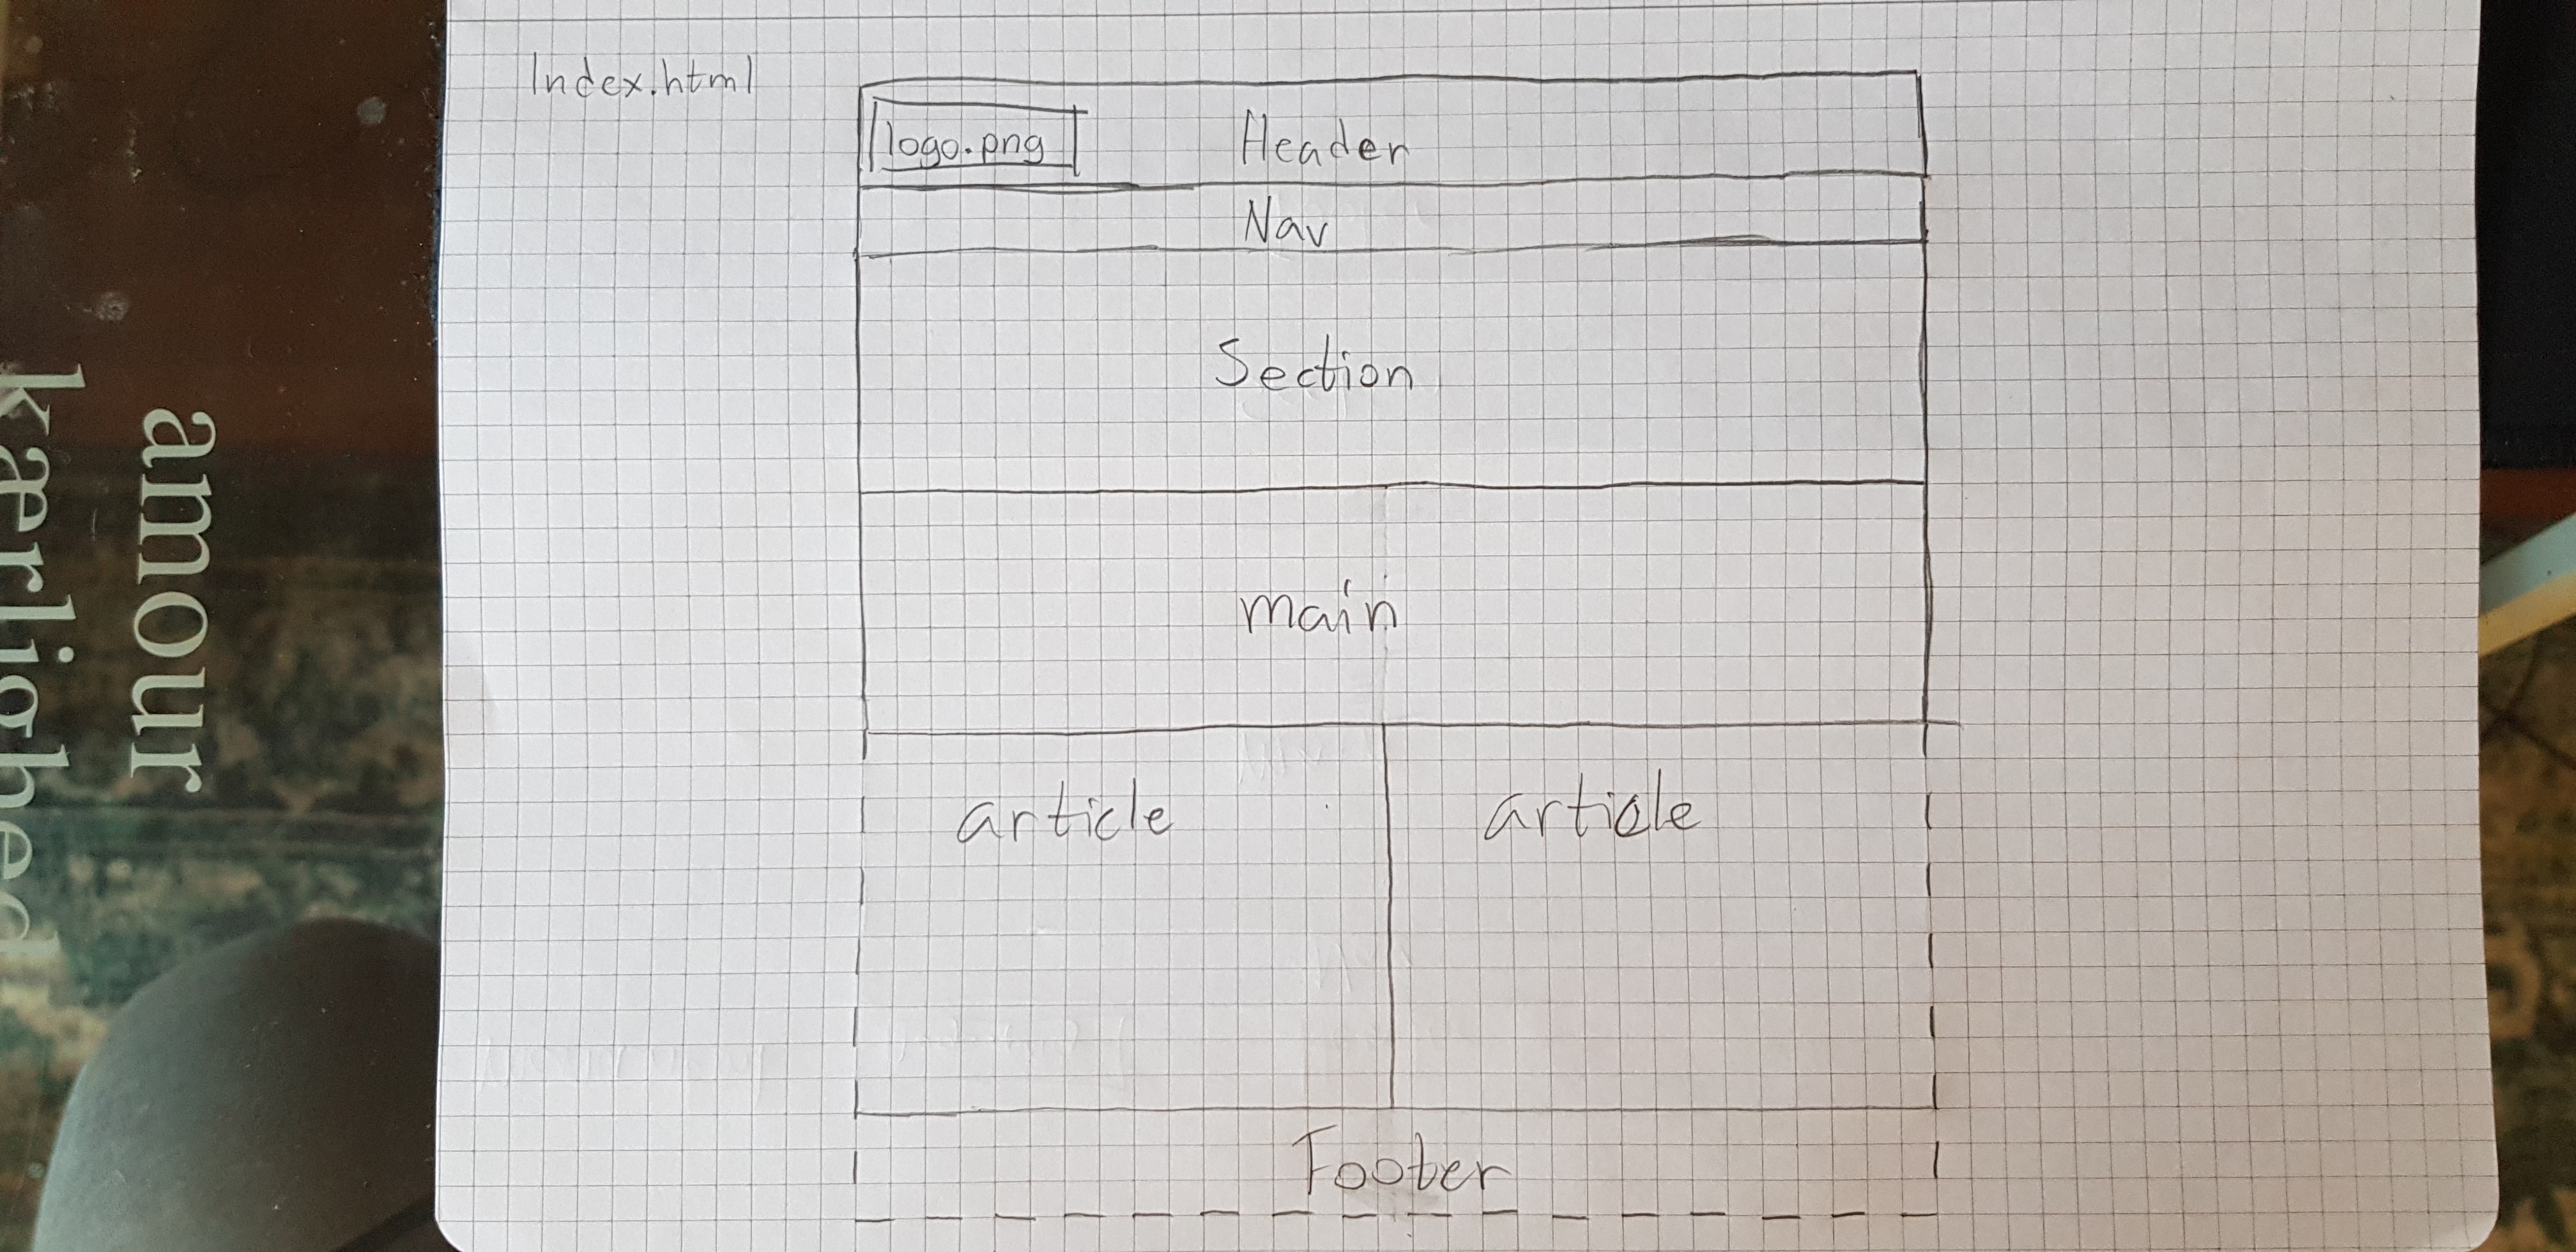 kærlighed
amour
Index.html
logo.png
Header
Nav
Section
main
article
article
Footer